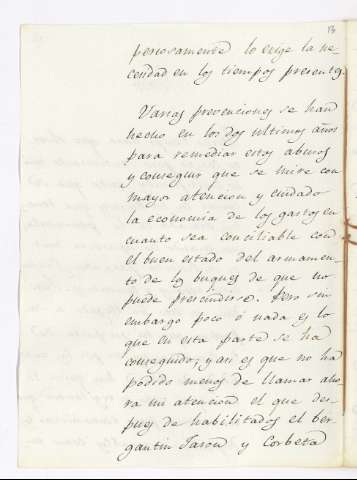 13
periosamente lo exige la ne
cesidad en los tiempos presentes.
Varias prevenciones se han
hecho en los dos ultimos años
para remediar estos abusos
y conseguir que se mire con
mayor atencion y cuidado
la economia de los gastos en
cuanto sea conciliable con
el buen estado del armamen-
to de los buques de que no
puede prescindirse. Pero sin
embargo poco ó nada es lo
que en esta parte se ha
conseguido; y asi es que no ha
podido menos de llamar aho
ra mi atencion el que des-
pues de habilitados el ber-
gantin Jason y Corbeta